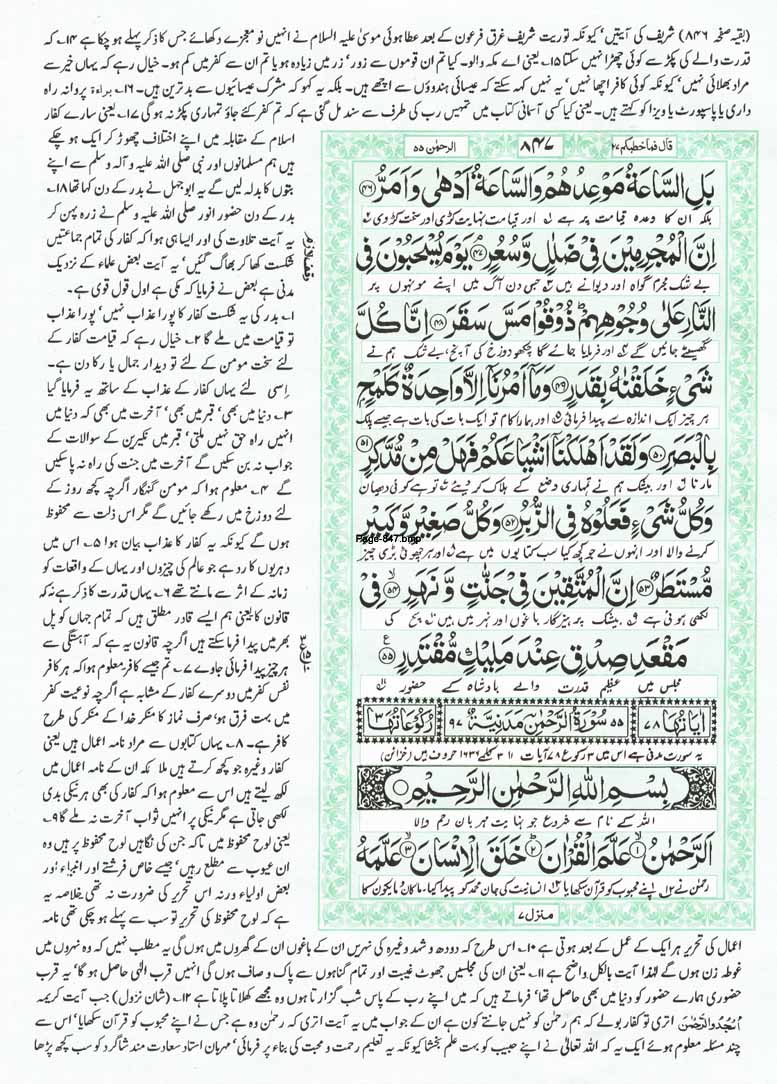 (بقیہ صفحہ ۸۴۶) شریف کی آیتیں' کیونکہ توریت شریف غرق فرعون کے بعد عطا ہوئی موسیٰ علیہ السلام نے انہیں نو معجزے دکھائے جس کا ذکر پہلے ہو چکا ہے ۱۴۔ کہ
قدرت والے کی پکڑ سے کوئی چھڑا نہیں سکتا ۱۵۔ یعنی اے مکہ والو۔ کیا تم ان قوموں سے زور' زر میں زیادہ ہو یا تم ان سے کفر میں کم ہو۔ خیال رہے کہ یہاں خیر سے
مراد بھلائی نہیں' کیونکہ کوئی کافر اچھا نہیں' یہ نہیں کہہ سکتے کہ عیسائی ہندوؤں سے اچھے ہیں۔ بلکہ یہ کہو کہ مشرک عیسائیوں سے بدتر ہیں۔ ۱۶۔ براءۃ پروانہ راہ
داری یا پاسپورٹ یا ویزا کو کہتے ہیں۔ یعنی کیا کسی آسمانی کتاب میں تمہیں رب کی طرف سے سند مل گئی ہے کہ تم کفر کئے جاؤ تمہاری پکڑ نہ ہو گی ۱۷۔ یعنی سارے کفار
اسلام کے مقابلہ میں اپنے اختلاف چھوڑ کر ایک ہو چکے
ہیں ہم مسلمانوں اور نبی صلی اللہ علیہ و آلہ وسلم سے اپنے
بتوں کا بدلہ لیں گے یہ ابوجہل نے بدر کے دن کہا تھا ۱۸۔
بدر کے دن حضور انور صلی اللہ علیہ وسلم نے زرہ پہن کر
یہ آیت تلاوت کی اور ایسا ہی ہوا کہ کفار کی تمام جماعتیں
شکست کھا کر بھاگ گئیں' یہ آیت بعض علماء کے نزدیک
مدنی ہے بعض نے فرمایا کہ مکی ہے اول قول قوی ہے۔
۱۔ بدر کی یہ شکست کفار کا پورا عذاب نہیں' پورا عذاب
تو قیامت میں ملے گا ۲۔ خیال رہے کہ قیامت کفار کے
لئے سخت مومن کے لئے تو دیدار جمال یار کا دن ہے۔
اسی لئے یہاں کفار کے عذاب کے ساتھ یہ فرمایا گیا
۳۔ دنیا میں بھی' قبر میں بھی' آخرت میں بھی کہ دنیا میں
انہیں راہ حق نہیں ملتی' قبر میں نکیرین کے سوالات کے
جواب نہ بن سکیں گے آخرت میں جنت کی راہ نہ پا سکیں
گے ۴۔ معلوم ہوا کہ مومن گنہگار اگرچہ کچھ روز کے
لئے دوزخ میں رکھے جائیں گے مگر اس ذلت سے محفوظ
ہوں گے کیونکہ یہ کفار کا عذاب بیان ہوا ۵۔ اس میں
دہریوں کا رد ہے جو عالم کی چیزوں اور یہاں کے واقعات کو
زمانہ کے اثر سے مانتے تھے ۶۔ یہاں قدرت کا ذکر ہے نہ کہ
قانون کا یعنی ہم ایسے قادر مطلق ہیں کہ تمام جہاں کو پل
بھر میں پیدا فرما سکتے ہیں اگرچہ قانون یہ ہے کہ آہستگی سے
ہر چیز پیدا فرمائی جاوے ۷۔ تم جیسے کافر معلوم ہوا کہ ہر کافر
نفس کفر میں دوسرے کفار کے مشابہ ہے اگرچہ نوعیت کفر
میں بہت فرق ہو' صرف نماز کا منکر خدا کے منکر کی طرح
کافر ہے۔ ۸۔ یہاں کتابوں سے مراد نامہ اعمال ہیں یعنی
کفار وغیرہ جو کچھ کرتے ہیں ملائکہ ان کے نامہ اعمال میں
لکھ لیتے ہیں اس سے معلوم ہوا کہ کفار کی بھی ہر نیکی بدی
لکھی جاتی ہے مگر نیکی پر انہیں ثواب آخرت نہ ملے گا ۹۔
یعنی لوح محفوظ میں تاکہ جن کی نگاہیں لوح محفوظ پر ہیں وہ
ان عیوب سے مطلع رہیں' جیسے خاص فرشتے اور انبیاء' اور
بعض اولیاء ورنہ اس تحریر کی ضرورت نہ تھی خلاصہ یہ
ہے کہ لوح محفوظ کی تحریر تو سب سے پہلے ہو چکی تھی نامہ
قال فما خطبکم ۲۷
۸۴۷
الرحمٰن ۵۵
بَلِ السَّاعَةُ مَوْعِدُهُمْ وَالسَّاعَةُ اَدْهٰى وَاَمَرُّ ۴۶
بلکہ ان کا وعدہ قیامت پر ہے اور قیامت نہایت کڑی اور سخت کڑوی
اِنَّ الْمُجْرِمِيْنَ فِيْ ضَلٰلٍ وَّسُعُرٍ ۴۷ يَوْمَ يُسْحَبُوْنَ فِي
بے شک مجرم گمراہ اور دیوانے ہیں جس دن آگ میں اپنے مونہوں پر
النَّارِ عَلٰى وُجُوْهِهِمْ ذُوْقُوْا مَسَّ سَقَرَ ۴۸ اِنَّا كُلَّ
گھسیٹے جائیں گے اور فرمایا جائے گا چکھو دوزخ کی آنچ بے شک ہم نے
شَيْءٍ خَلَقْنٰهُ بِقَدَرٍ ۴۹ وَمَا اَمْرُنَا اِلَّا وَاحِدَةٌ كَلَمْحٍ
ہر چیز ایک اندازہ سے پیدا فرمائی اور ہمارا کام تو ایک بات کی بات ہے جیسے پلک
بِالْبَصَرِ ۵۰ وَلَقَدْ اَهْلَكْنَا اَشْيَاعَكُمْ فَهَلْ مِنْ مُّدَّكِرٍ ۵۱
مارنا اور بیشک ہم نے تمہاری وضع کے ہلاک کر دیئے تو ہے کوئی دھیان
وَكُلُّ شَيْءٍ فَعَلُوْهُ فِي الزُّبُرِ ۵۲ وَكُلُّ صَغِيْرٍ وَّكَبِيْرٍ
Page-847.bmp
کرنے والا اور انہوں نے جو کچھ کیا سب کتابوں میں ہے اور ہر چھوٹی بڑی چیز
مُّسْتَطَرٌ ۵۳ اِنَّ الْمُتَّقِيْنَ فِيْ جَنّٰتٍ وَّنَهَرٍ ۵۴ فِيْ
لکھی ہوئی ہے بیشک پرہیزگار باغوں اور نہر میں ہیں سچ کی
مَقْعَدِ صِدْقٍ عِنْدَ مَلِيْكٍ مُّقْتَدِرٍ ۵۵
مجلس میں عظیم قدرت والے بادشاہ کے حضور
اٰیَاتُهَا ۷۸ ۵۵ سُوْرَةُ الرَّحْمٰنِ مَدَنِيَّةٌ ۹۷ رُكُوْعَاتُهَا ۳
یہ سورت مدنی ہے اس میں ۳ رکوع ۷۸ آیات ۳۵۱ کلمے ۱۶۳۶ حروف ہیں (خزائن)
بِسْمِ اللّٰهِ الرَّحْمٰنِ الرَّحِيْمِ
اللہ کے نام سے شروع جو نہایت مہربان رحم والا
اَلرَّحْمٰنُ ۱ عَلَّمَ الْقُرْاٰنَ ۲ خَلَقَ الْاِنْسَانَ ۳ عَلَّمَهُ
رحمٰن نے اپنے محبوب کو قرآن سکھایا انسانیت کی جان محمد کو پیدا کیا، ماکان و مایکون کا
منزل ۷
اعمال کی تحریر ہر ایک کے عمل کے بعد ہوتی ہے ۱۰۔ اس طرح کہ دودھ و شہد وغیرہ کی نہریں ان کے باغوں ان کے گھروں میں ہوں گی یہ مطلب نہیں کہ وہ نہروں میں
غوطہ زن ہوں گے لہٰذا آیت بالکل واضح ہے ۱۱۔ یعنی ان کی مجلسیں جھوٹ غیبت اور تمام گناہوں سے پاک و صاف ہوں گی انہیں قرب الٰہی حاصل ہو گا' یہ قرب
حضوری ہمارے حضور کو دنیا میں بھی حاصل تھا' فرماتے ہیں کہ میں اپنے رب کے پاس شب گزارتا ہوں وہ مجھے کھلاتا پلاتا ہے ۱۲۔ (شان نزول) جب آیت کریمہ
اسْجُدُوْا لِلرَّحْمٰنِ اتری تو کفار بولے کہ ہم رحمٰن کو نہیں جانتے کون ہے ان کے جواب میں یہ آیت اتری کہ رحمٰن وہ ہے جس نے اپنے محبوب کو قرآن سکھایا' اس سے
چند مسئلہ معلوم ہوئے ایک یہ کہ اللہ تعالیٰ نے اپنے حبیب کو بہت علم بخشا کیونکہ یہ تعلیم رحمت و محبت کی بناء پر فرمائی' مہربان استاد سعادت مند شاگرد کو سب کچھ پڑھا